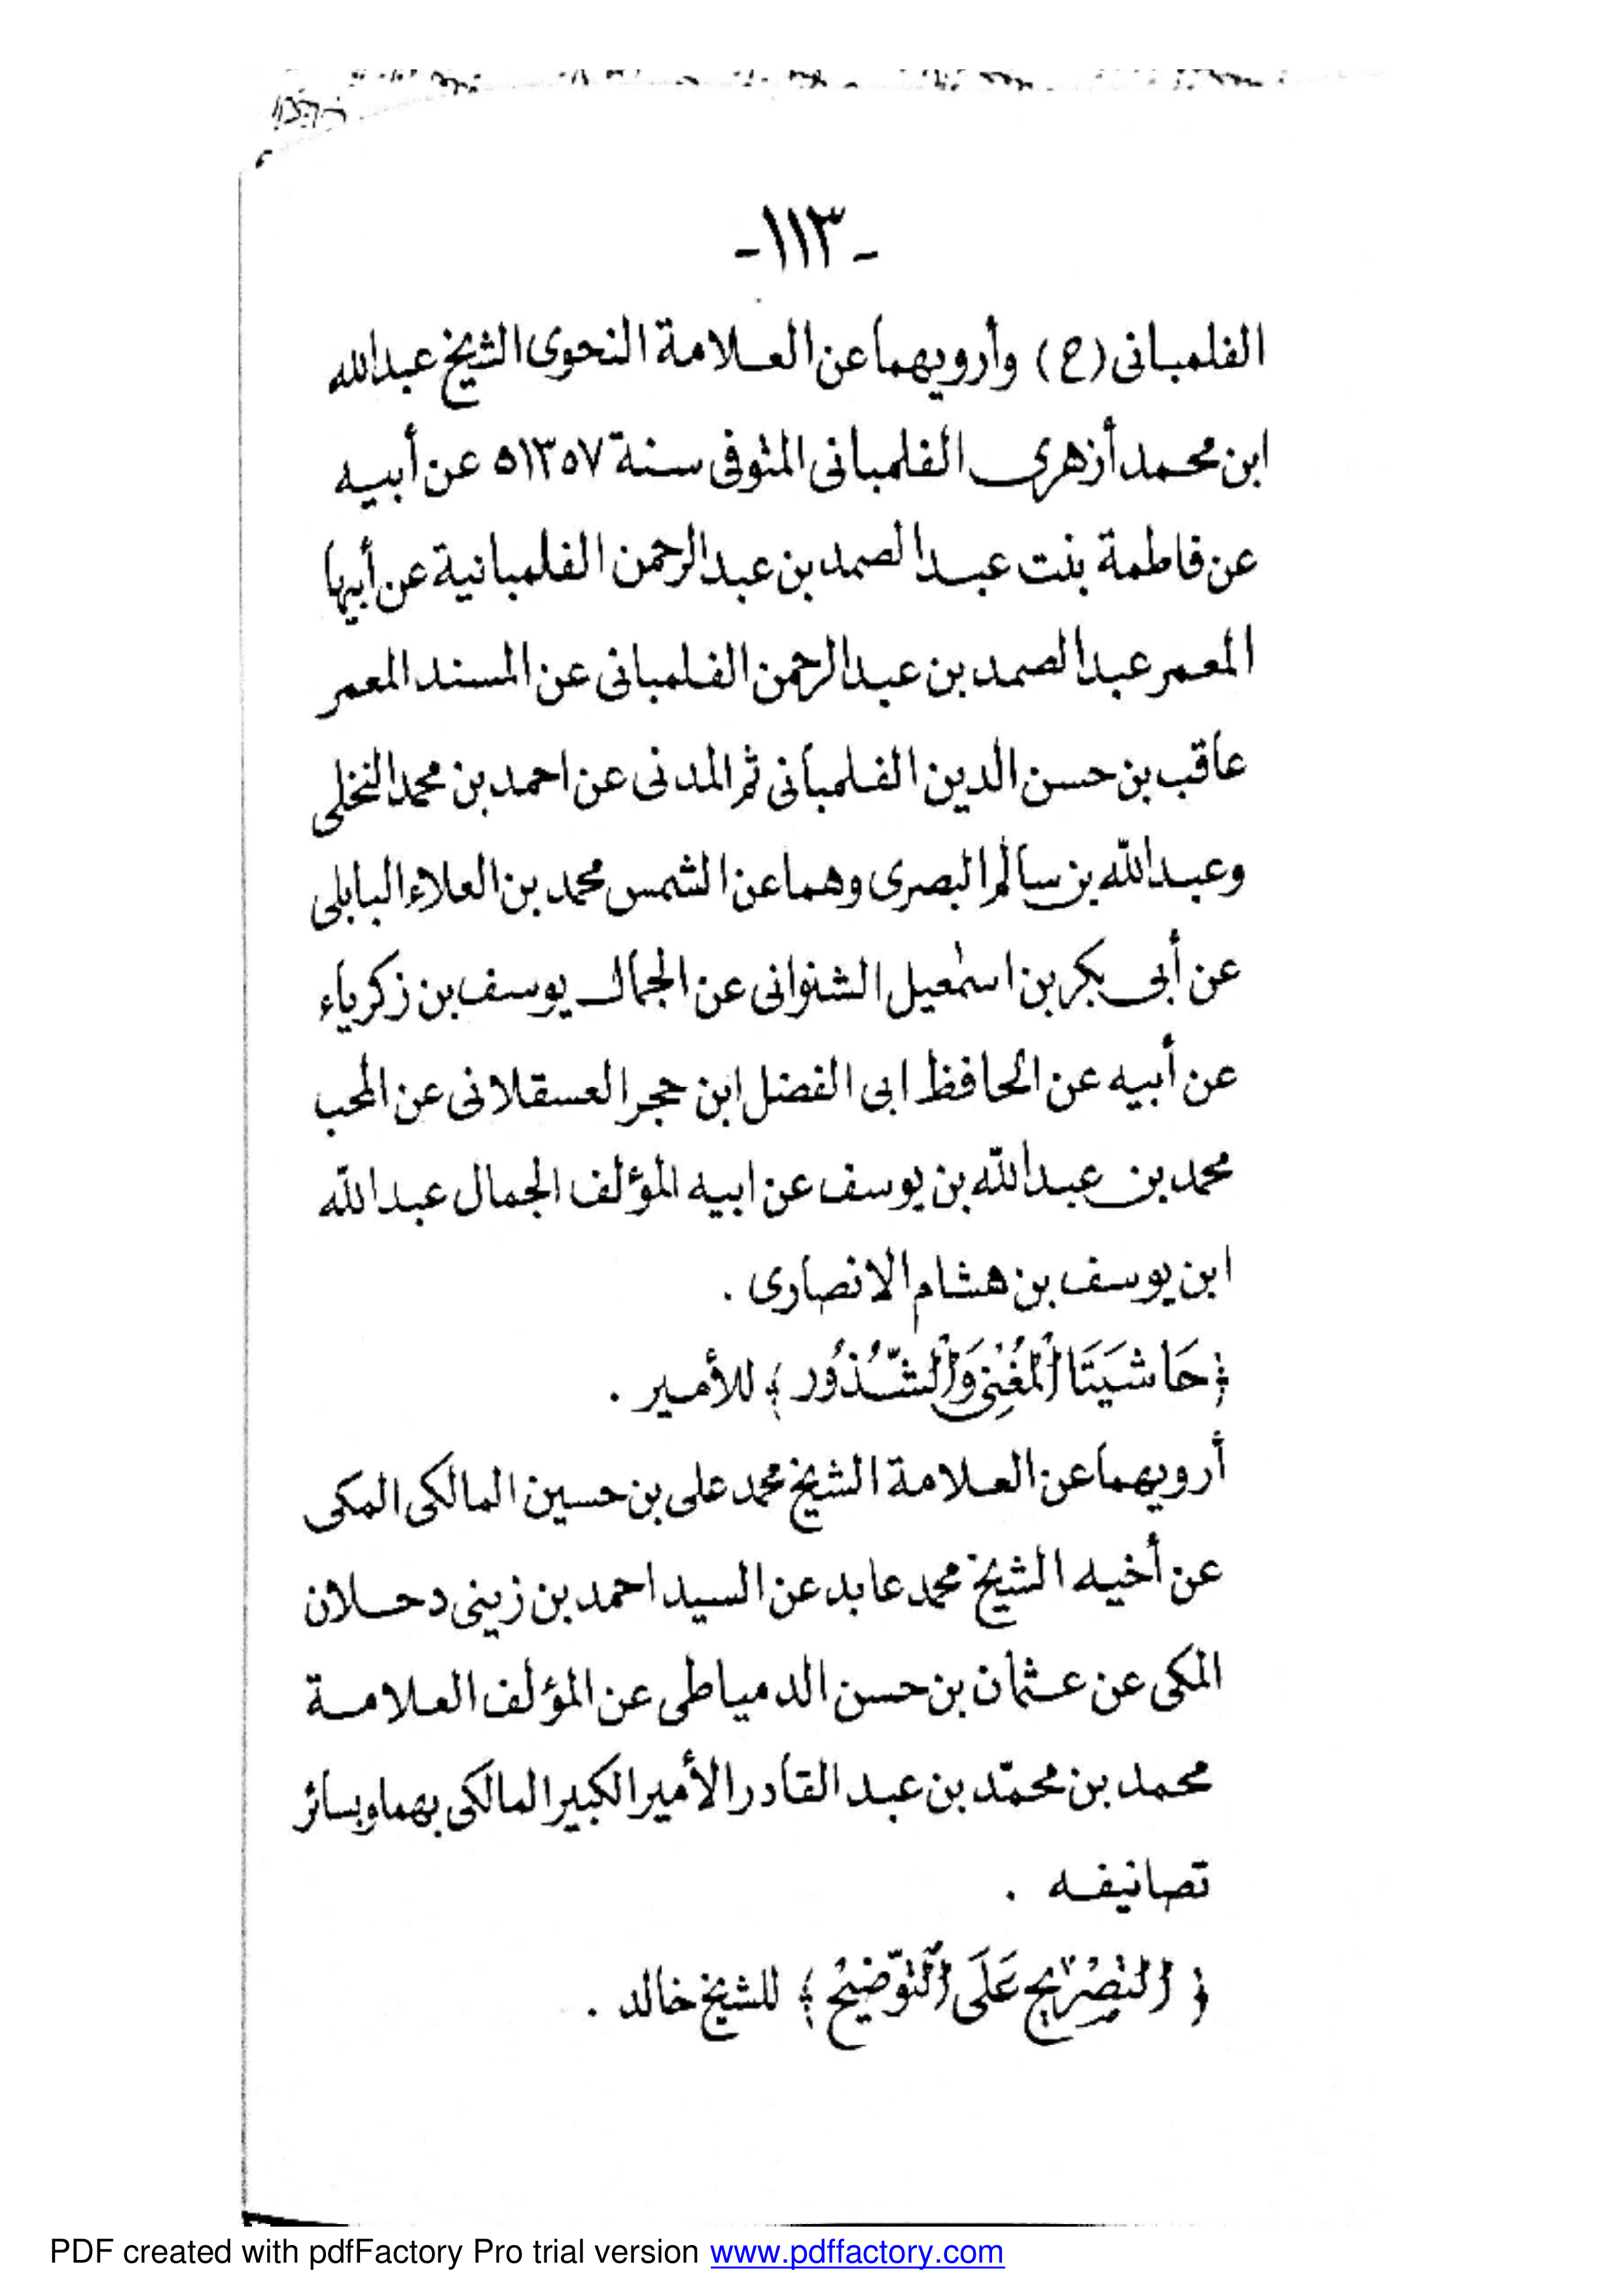 -١١٣-
الفلمبانى (ح) وأرويهما عن العلامة النحوى الشيخ عبدالله
ابن محمد أزهرى الفلمبانى المتوفى سنة ١٣٥٧ه عن أبيه
عن فاطمة بنت عبدالصمد بن عبدالرحمن الفلمبانية عن أبيها
المعمر عبدالصمد بن عبدالرحمن الفلمبانى عن المسند المعمر
عاقب بن حسن الدين الفلمبانى ثم المدنى عن احمد بن محمد النخلى
وعبدالله بن سالم البصرى وهما عن الشمس محمد بن العلاء البابلى
عن أبى بكر بن اسمٰعيل الشنوانى عن الجمال يوسف بن زكرياء
عن أبيه عن الحافظ ابى الفضل ابن حجر العسقلانى عن المحب
محمد بن عبدالله بن يوسف عن ابيه المؤلف الجمال عبدالله
ابن يوسف بن هشام الانصارى .
﴿حَاشَيَتَا الْمُغْنِى وَالْشُّذُوُر﴾ للأمير .
أرويهما عن العلامة الشيخ محمد على بن حسين المالكى المكى
عن أخيه الشيخ محمد عابد عن السيد احمد بن زينى دحلان
المكى عن عثمان بن حسن الدمياطى عن المؤلف العلامة
محمد بن محمّد بن عبد القادر الأمير الكبير المالكى بهما وبسائر
تصانيفه .
﴿التَصْرِيح عَلَى الْتَوّضيْح﴾ للشيخ خالد .
PDF created with pdfFactory Pro trial version www.pdffactory.com